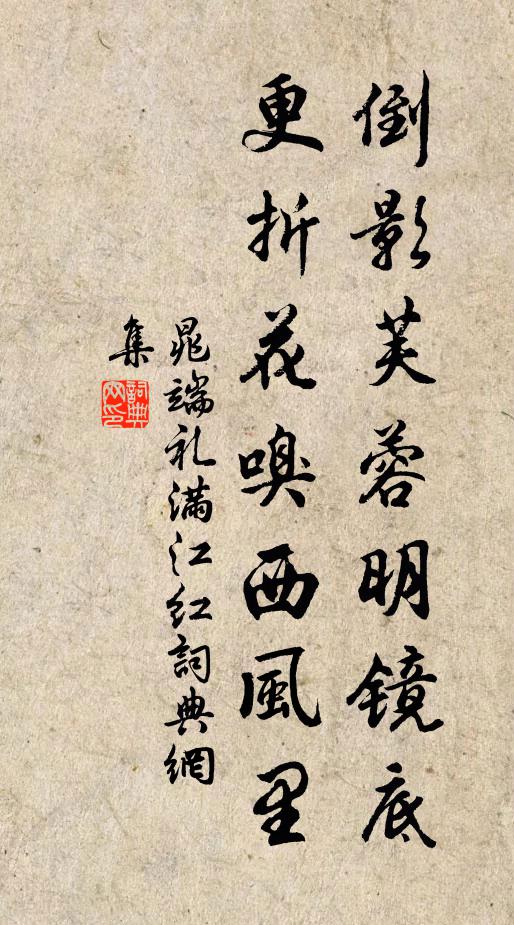 倒影芙蓉明镜底
更折花嗅西風里
晁端礼满江红詞典網
集
詞典网印